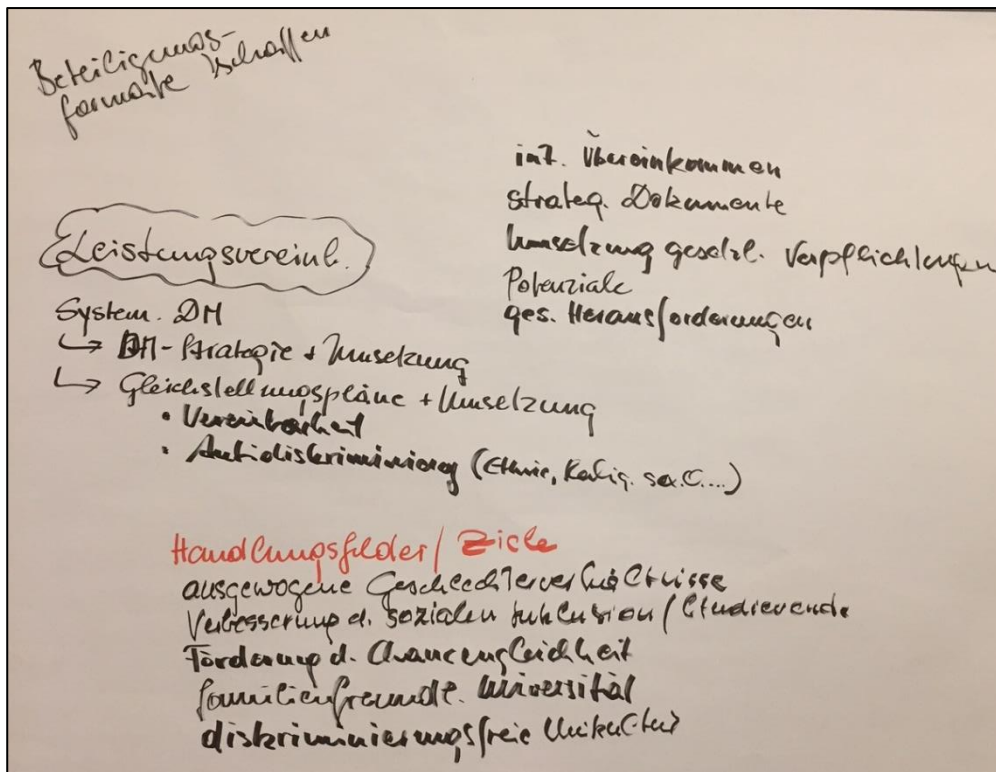 Beteiligungs-
formate schaffen
int. Übereinkommen
strateg. Dokumente
Umsetzung gesetzl. Verpflichtungen
Potenziale
ges. Herausforderungen
Leistungsvereinb.
System. DM
↳ DM-Strategie + Umsetzung
↳ Gleichstellungspläne + Umsetzung
• Vereinbarkeit
• Antidiskriminierung (Ethnie, Relig. sex. O....)
Handlungsfelder / Ziele
ausgewogene Geschlechterverhältnisse
Verbesserung d. sozialen Inklusion / Studierende
Förderung d. Chancengleichheit
familienfreundl. Universität
diskriminierungsfreie Unikultur